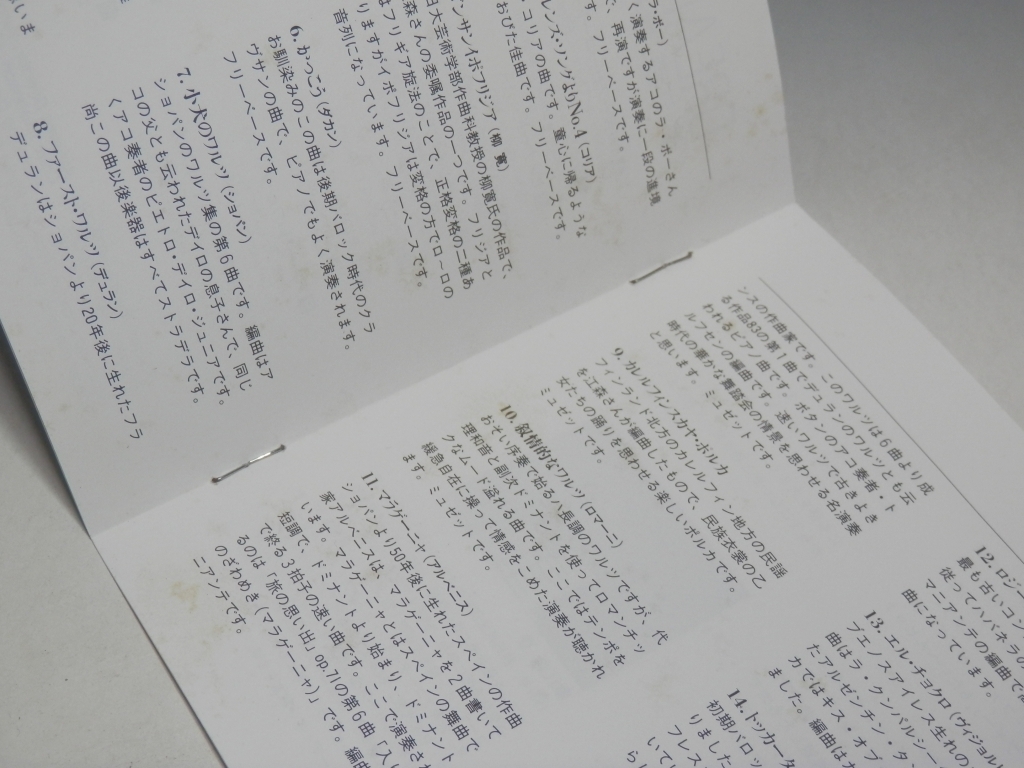 ラ・ボー)
く演奏するアコのラ・ボーさん
再演ですが演奏に一段の進境
す。フリーベースです。
レンズ・ソングよりNo.4(コリア)
コリアの曲です。童心に帰るような
おびた佳曲です。フリーベースです。
ンサン・イポフリジア(柳 寛)
日大芸術学部作曲科教授の柳寛氏の作品で、
森さんの委嘱作品の一つです。フリジアと
はフリギア旋法のことで、正格変格の二種あ
りますがイポフリジアは変格の方でロ－ロの
音列になっています。フリーベースです。
6. かっこう(ダカン)
お馴染みのこの曲は後期バロック時代のクラ
ヴサンの曲で、ピアノでもよく演奏されます。
フリーベースです。
7. 小犬のワルツ(ショパン)
ショパンのワルツ集の第6曲です。編曲はア
コの父とも云われたデイロの息子さんで、同じ
くアコ奏者のピエトロ・デイロ・ジュニアです。
尚この曲以後楽器はすべてストラデラです。
8. ファースト・ワルツ(デュラン)
デュランはショパンより20年後に生れたフラ
ンスの作曲家です。このワルツは6曲より成
る作品83の第1曲でデュランのワルツとも云
われるピアノ曲です。ボタンのアコ奏者・ト
ルフセンの編曲です。速いワルツで古きよき
時代の華かな舞踏会の情景を思わせる名演奏
と思います。ミュゼットです。
9. カレルフィンスカヤ・ポルカ
フィンランド北方のカレルフィン地方の民謡
を江森さんが編曲したもので、民族衣裳の乙
女たちの踊りを思わせる楽しいポルカです。
ミュゼットです。
10. 叙情的なワルツ(ロマーニ)
おそい序奏で始る、長調のワルツですが、代
理和音と副次ドミナントを使ってロマンチッ
クなムード溢れる曲です。ここではテンポを
緩急自在に操って情感をこめた演奏が聴かれ
ます。ミュゼットです。
11. マラゲーニャ(アルベニス)
ショパンより50年後に生れたスペインの作曲
家アルベニスは、マラゲーニャを2曲書いて
います。マラゲーニャとはスペインの舞曲で
短調で、ドミナントより始まり、ドミナント
で捻る3拍子の速い曲です。ここで演奏さ
るのは「旅の思い出」op.71の第6曲「入り
のざわめき(マラゲーニャ)」です。編曲
ニアンテです。
12. ロジ
最も古いコン
従ってハバネラの
マニアンテの編曲で
曲になっています。
13. エル・チョクロ(ヴィジョル
ブエノスアイレス生れの
曲はラ・クンパルシー
たアルゼンチン・タ
カではキス・オブ
ました。編曲はオ
14. トッカータ
初期バロッ
りました
フレス
いて
らし